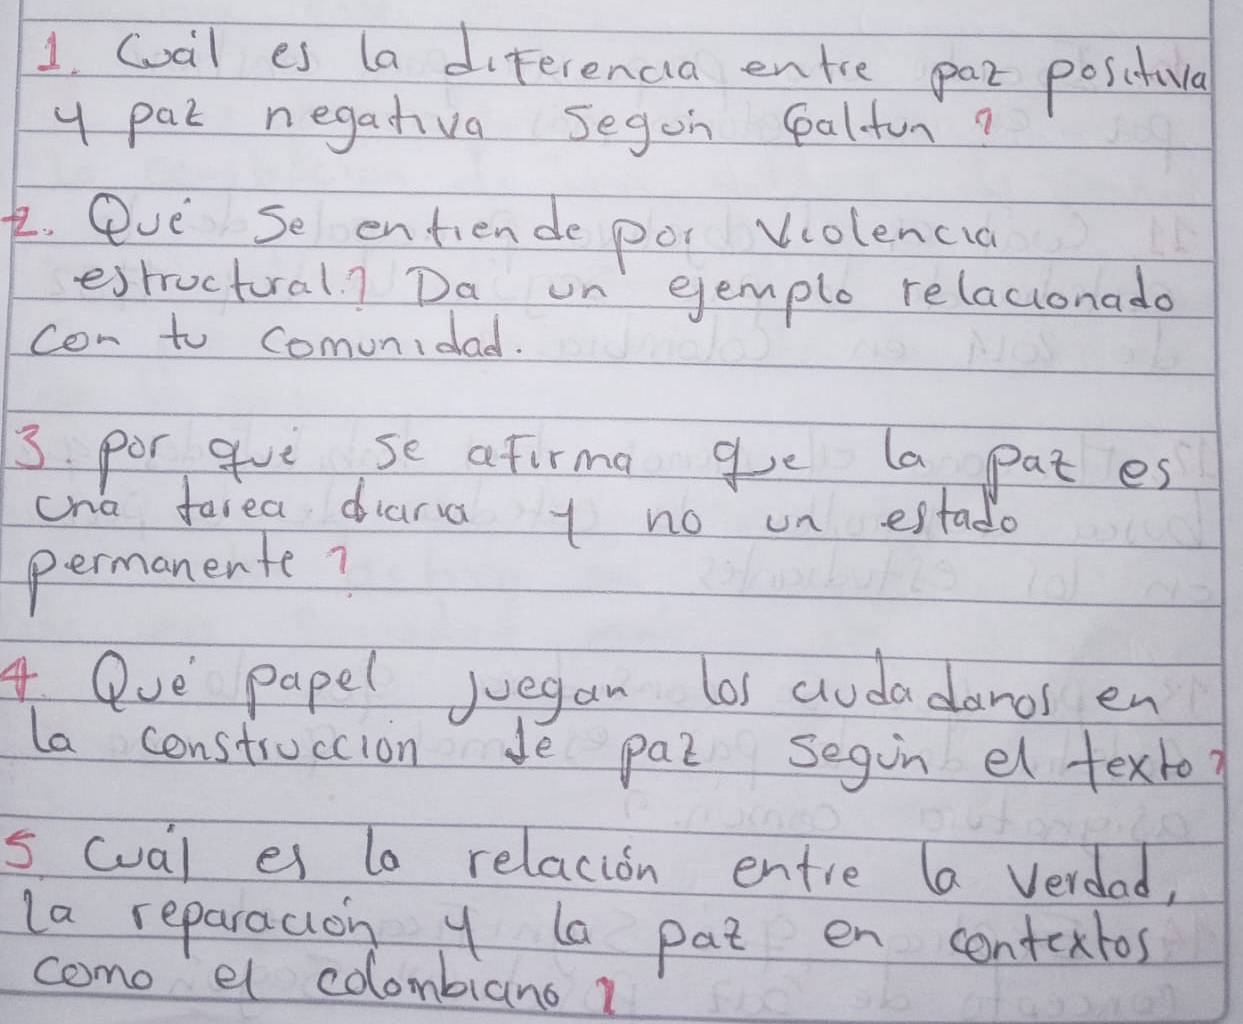 1. Cuál es la diferencia entre paz positiva
y paz negativa según Galtun?
2. Qué se entiende por violencia
estructural? Da un ejemplo relacionado
con tu comunidad.
3. por qué se afirma que la paz es
una tarea diaria y no un estado
permanente?
4. Qué papel juegan los ciudadanos en
la construccion de paz según el texto?
5. Cuál es la relación entre la verdad,
la reparación y la paz en contextos
como el colombiano?